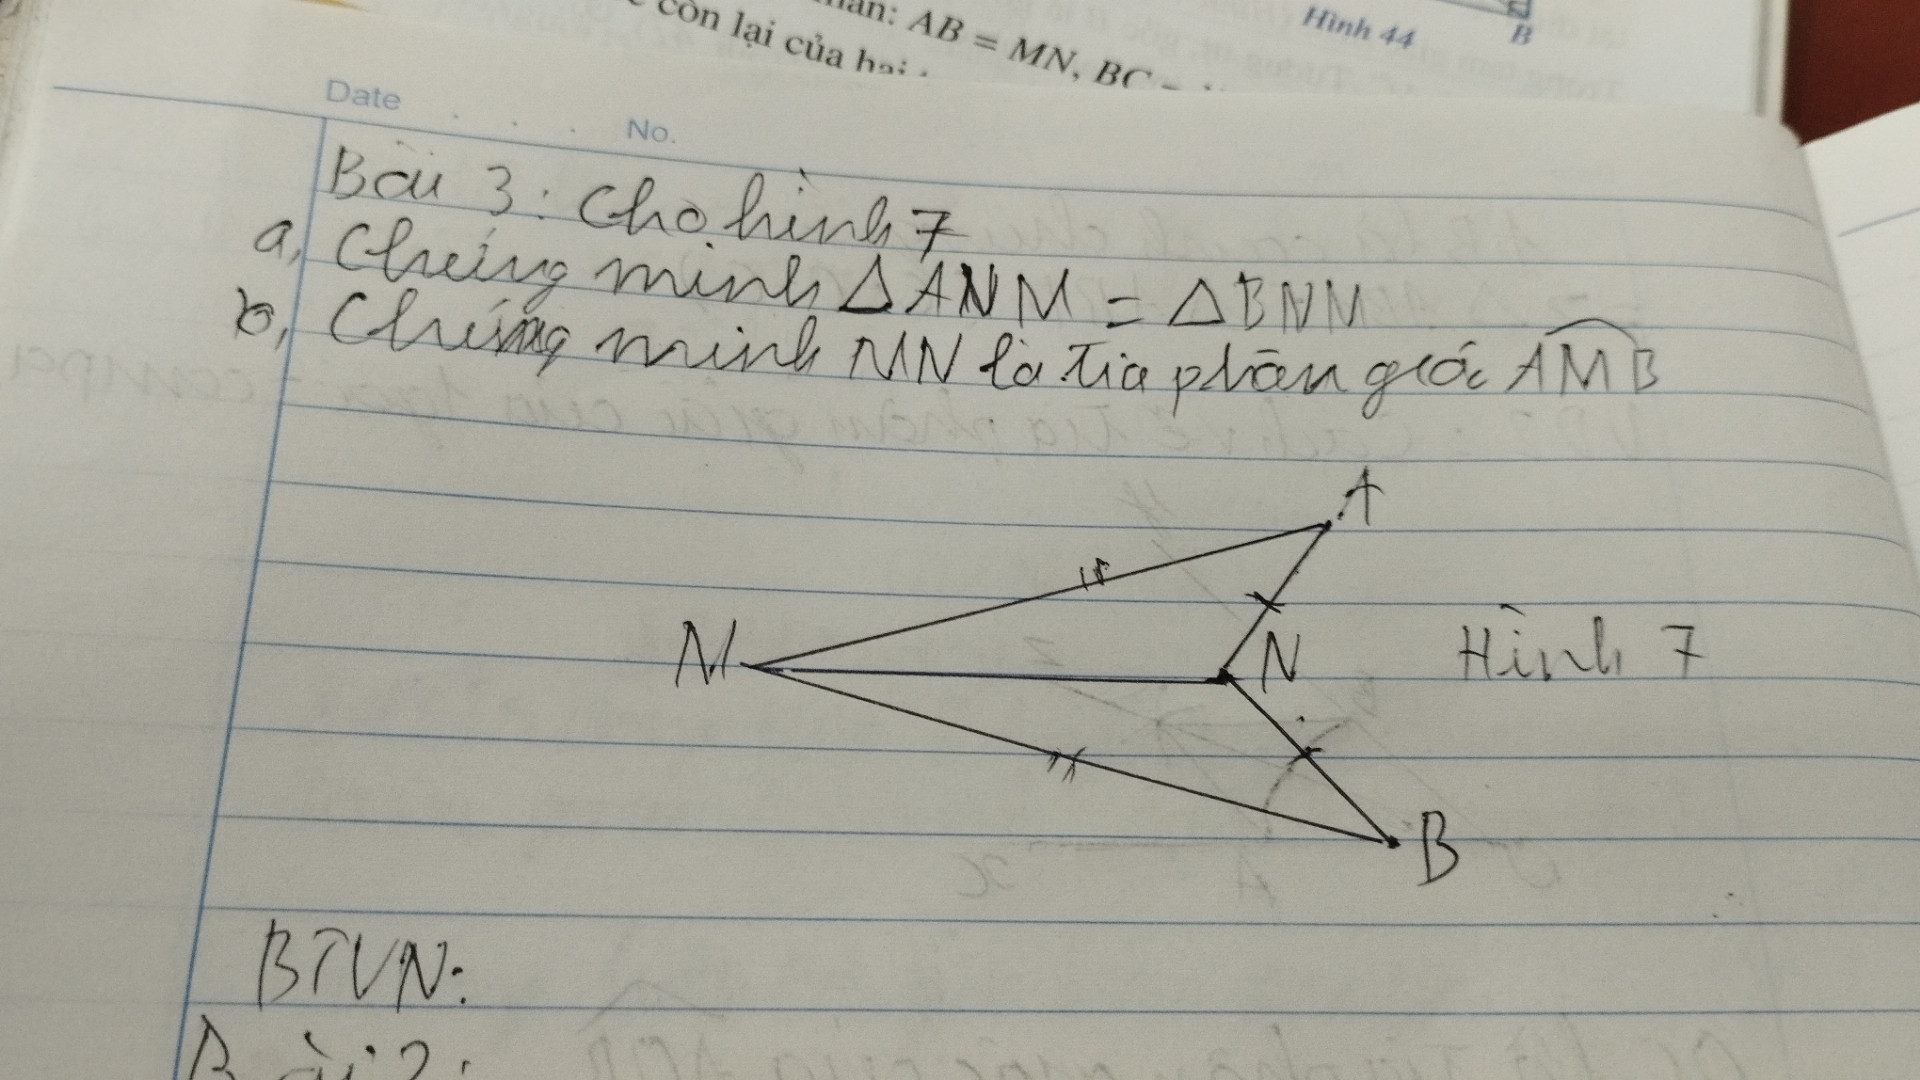 AB = MN, BC
còn lại của hai
Hình 44
B
Date
No.
Bài 3: Cho hình 7
a, Chứng minh △ANM = △BNM
b, Chứng minh MN là tia phân giác AMB
A
M
N
Hình 7
B
BTVN:
Bài 2: